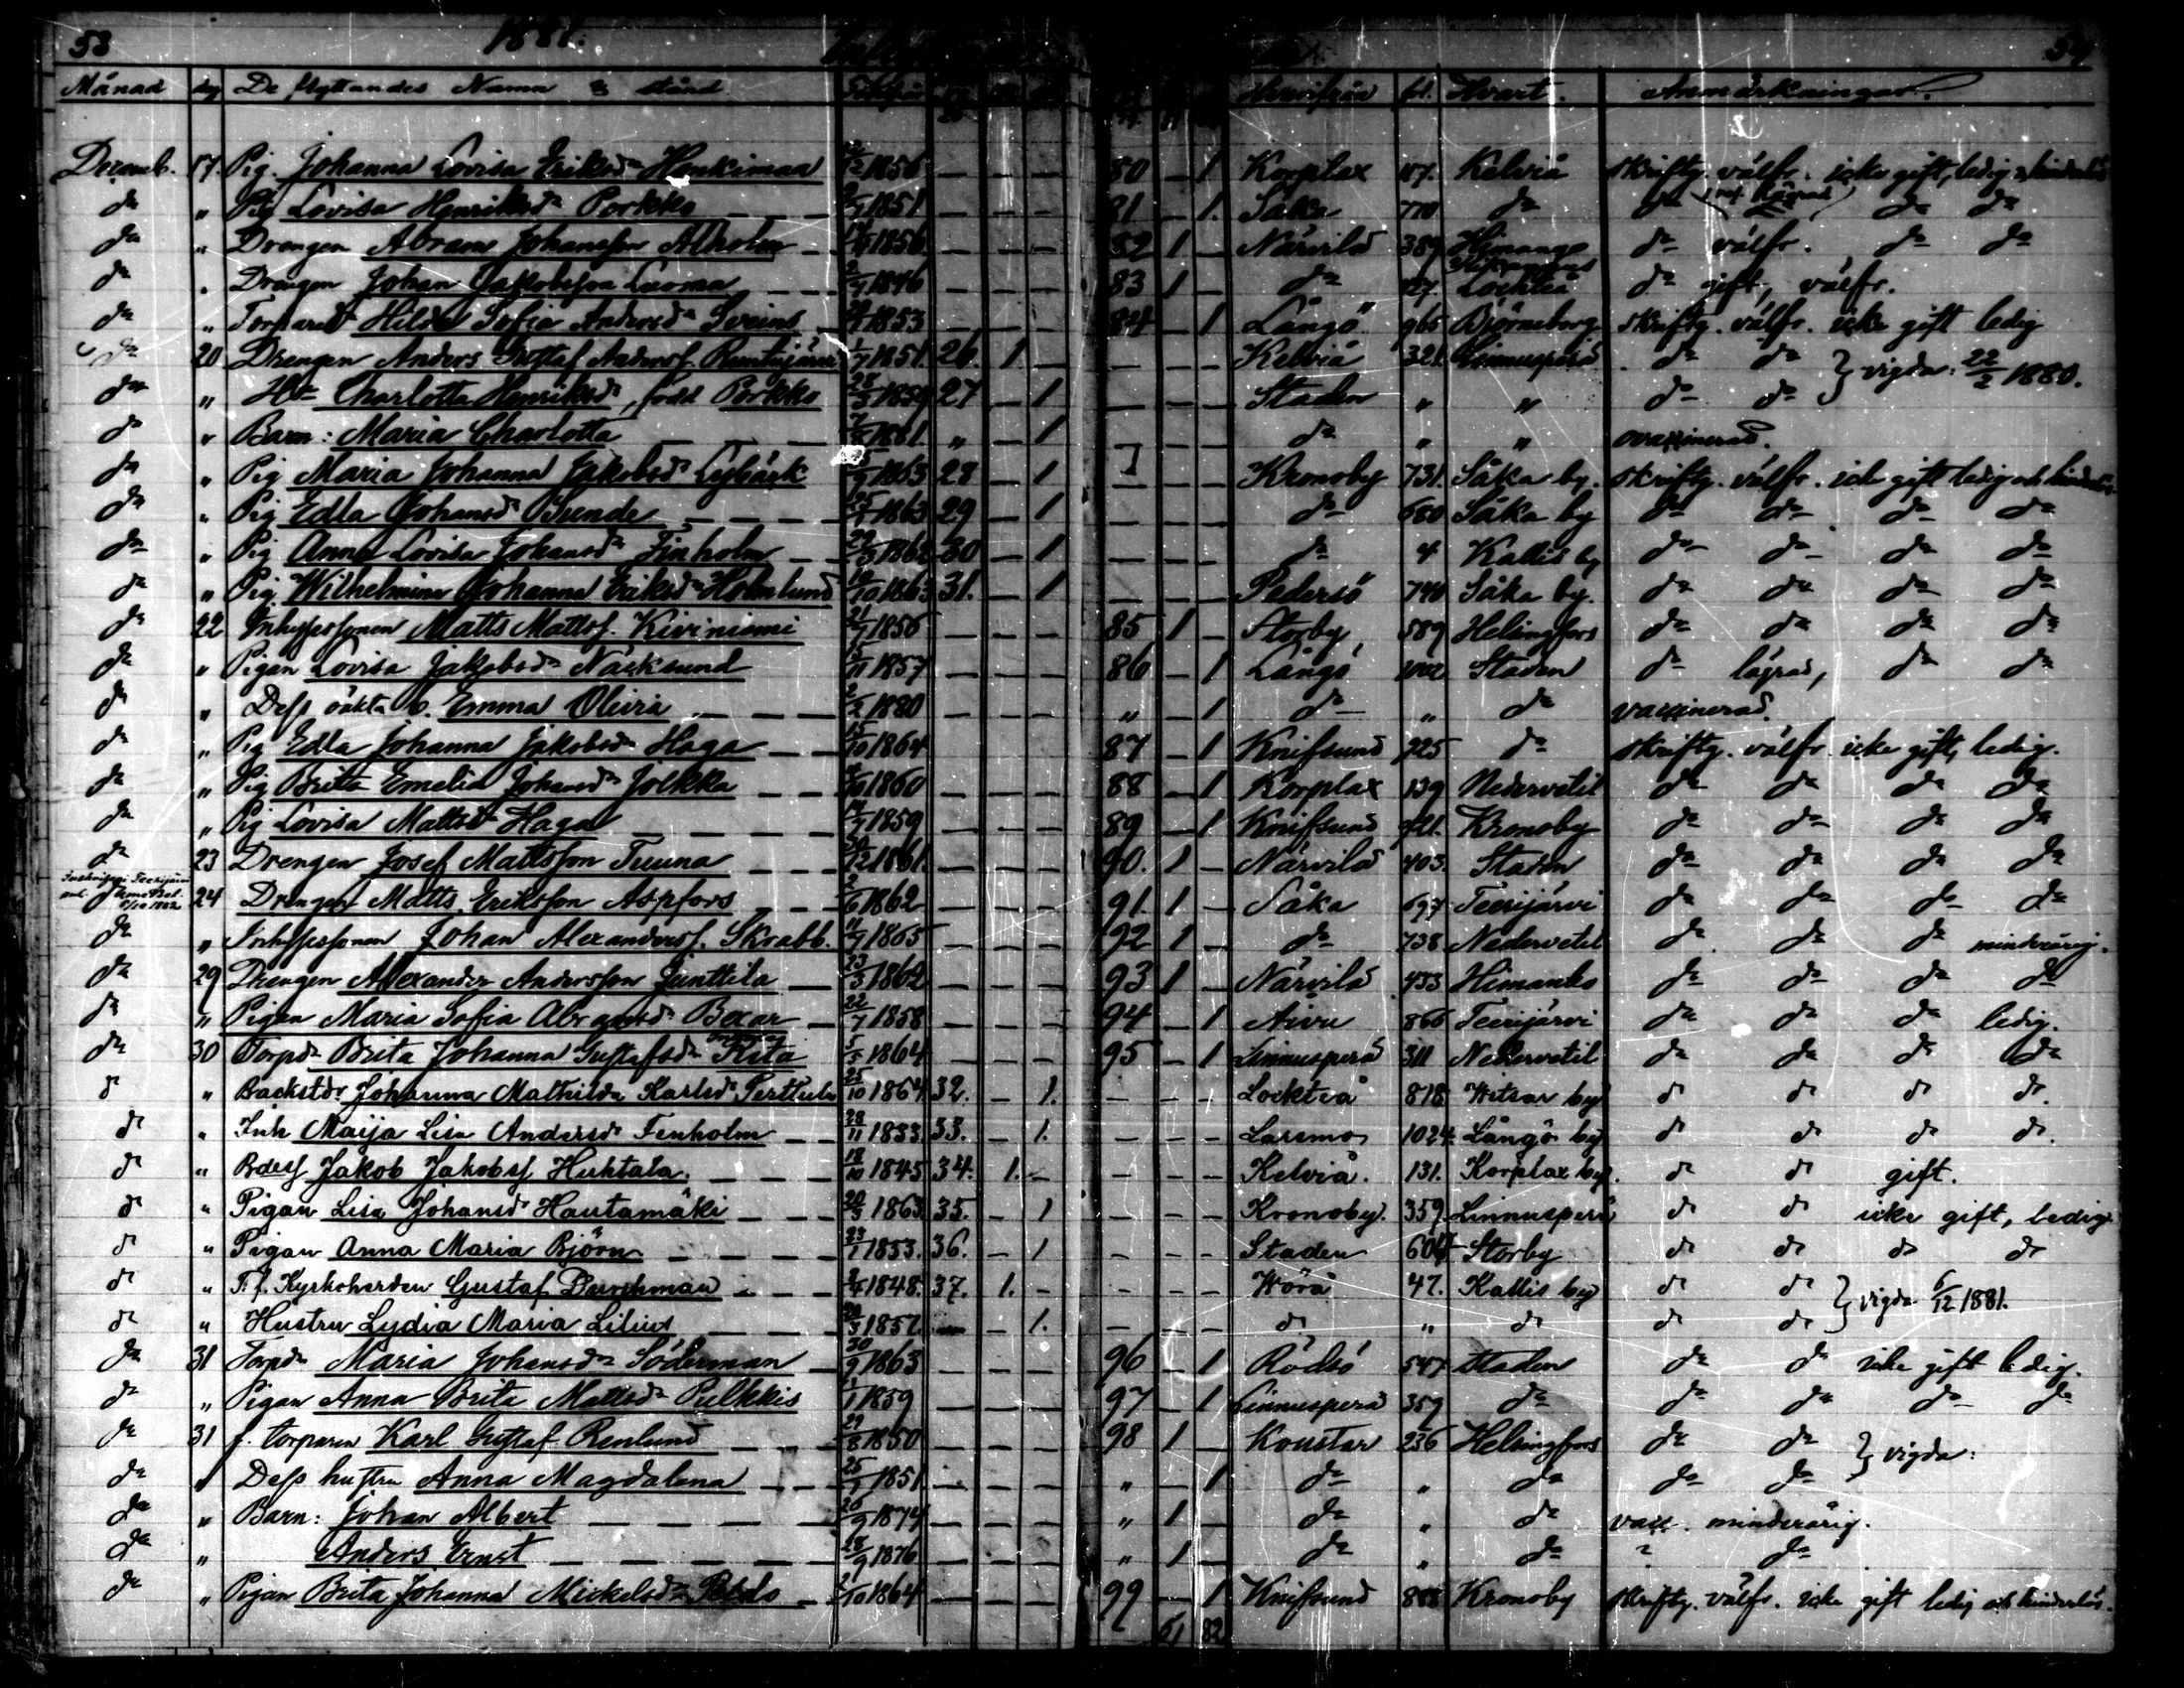 53 1881. 54
Månad dag De flyttandes Namn & stånd Hvarifrån fol. Hvart. Anmärkningar.
Decemb. 17. Pig. Johanna Lovisa Eriksdr Honkimaa 1856 — — — 80 1 Korplax 157. Kelviå skriftg. välfr. icke gift, ledig
da " Pig Lovisa Henriksdr Porkko — — 1851 — — — 81 — 1. Såka 770 da da da da
da " Drengen Abram Johansson Alholm — 1856 — — — 82 1 — Närvilä 389 Himango da välfr. da da
da " Drengen Johan Jakobsson — — 1846 — — — 83 1 — da 127. Lochteå da gift, välfr.
da " Hilda Sofia Andersdr Sveins 1853 — — — 84 — 1 Långö 965 Björneborg skriftg. välfr. icke gift ledig
da 20 Drengen Anders Gustaf Andersf. 1/7 1851. 26. 1 — — — — Kelviå 321. Linnusperä da da } vigda: 22/2 1880.
da " Hu Charlotta Henriksdr, född Porkko 1859 27 — 1 — — — Staden " " da da
da " Barn: Maria Charlotta — — — 1881 " — 1 da " " ovaxinerad.
da " Pig Maria Johanna Jakobsdr Lybäck 1863 28 — 1 — — — Kronoby 731. Såka by. skriftg. välfr. icke gift ledig och
da " Pig Edla Johansdr Sunde — — — 25/7 1863 29 — 1 — — — da 680 Såka by da da da da
da " Pig Anna Lovisa Johansdr Finholm — 1862 30 — 1 — — — da 4 Kallis by da da da da
da " Pig Wilhelmina Johanna Eriksdr Holmlund 19/10 1863 31. — 1 — — — Pedersö 740 Såka by. da da da da
da 22 Matts Mattsf. Kiviniemi 1856 — — — 85 1 — Storby 589 Helsingfors da da da da
da " Pigan Lovisa Jakobsdr Näcksund 1857 — — — 86 — 1 Långö Staden da lägrad, da da
da " Dess oäkta b. Emma Olivia — — — 2/2 1880 — — — " — 1 da " da vaxinerad.
da " Pig Edla Johanna Jakobsdr Haga — — 15/10 1864 — — — 87 — 1 Knifsund 925 da skriftg. välfr. icke gift, ledig.
da " Pig Brita Emelia Johansdr Jolkka — — 1860 — — — 88 — 1 Korplax 139 Nedervetil da da da da
da " Pig Lovisa Mattsdr Haga — — — 1859 — — — 89 — 1 Knifsund 921. Kronoby da da da da
da 23 Drengen Josef Mattsson Tuuna — — 30/12 1861. — — — 90. 1 — Närvilä 403. Staden da da da da
24 Drengen Matts Eriksson Aspfors — — 1862 — — — 91. 1 — Såka 697 Teerijärvi da da da da
da " Johan Alexandersf. Skrabb. 1865 — — — 92 1 — da 738 Nedervetil da da da minderårig.
da 29 Drengen Alexander Andersson Junttila — 23/3 1862 — — — 93 1 — Närvilä 453 Himanko da da da da
da " Pigan Maria Sofia Abramsdr Bexar — 22/7 1858 — — — 94 — 1 Aivu 866 Teerijärvi da da da ledig.
da 30 Torpdr Brita Johanna Gustafsdr 5/5 1864 — — — 95 — 1 Linnusperä 311 Nedervetil da da da da
da " Backstdr Johanna Mathilda Karlsdr Perttula 25/10 1864 32. — 1. — — — Lockteå 818 Witsar by da da da da
da " Inh Maija Lisa Andersdr Fenholm — — 28/11 1833. 33. — 1. — — — Larsmo 1024. Långö by da da da da.
da " Jakob Jakobsf Huhtala. — — — 18/10 1845 34. 1. — — — — Kelviå. 131. Korplax by. da da gift.
da " Pigan Lisa Johansdr Hautamäki — — — 1863. 35. — 1 — — — Kronoby. 359. Linnusperä da da icke gift, ledig
da " Pigan Anna Maria Björn — — — 23/1 1853. 36. — 1 — — — Staden 604 Storby da da da da
da " T. f. Kyrkoherden Gustaf Durchman — — 1848. 37. 1. — — — — Wörå 47. Kallis by da da } vigda 6/12 1881.
da " Hustru Lydia Maria Lilius — — — 1857. — — 1. — — — da " da da da
da 31 Torpdr Maria Johansdr Söderman — 30/9 1863 — — — 96 — 1 Rödsö 547 staden da da icke gift ledig.
da " Pigan Anna Brita Mattsdr Pulkkis 1/1 1859 — — — 97 — 1 Linnusperä 359 da da da da da
da 31 f. torparen Karl Gustaf Renlund — 29/8 1850 — — — 98 1 — Koustar 236 Helsingfors da da } vigda:
da " Dess hustru Anna Magdalena — — — 25/7 1851. — — — " — 1 da " da da da
da " Barn: Johan Albert — — — — 26/9 1874 — — — " 1 — da " da vax. minderårig.
da " Anders Ernst — — — — 28/9 1876 — — — " 1 — da " da da
da " Pigan Brita Johanna Mickelsdr — 1864 — — — 99 — 1 Knifsund 888 Kronoby skriftg. välfr. icke gift ledig och kinderlös.
61 82